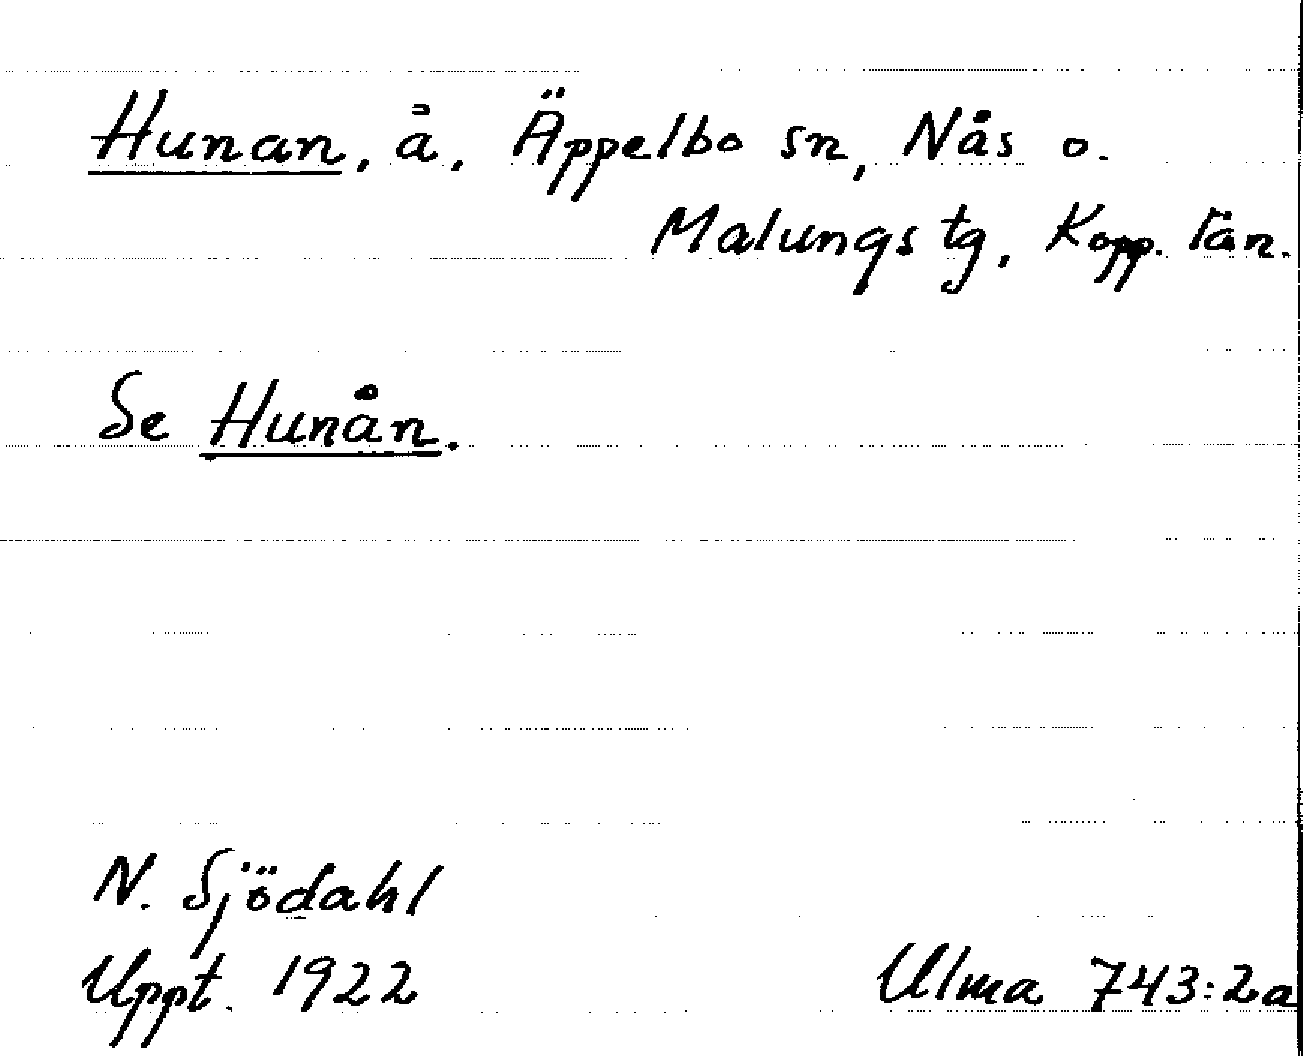 Hunan, å, Äppelbo sn, Nås o.
Malungs tg, Kopp. län.
Se Hunån.
N. Sjödahl
Uppt. 1922
Ulma 743:2a